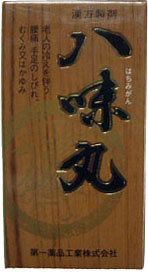 漢方製剤
八味丸
はちみがん
老人の冷えを伴う
腰痛、手足のしびれ、
むくみ又はかゆみ
第一薬品工業株式会社